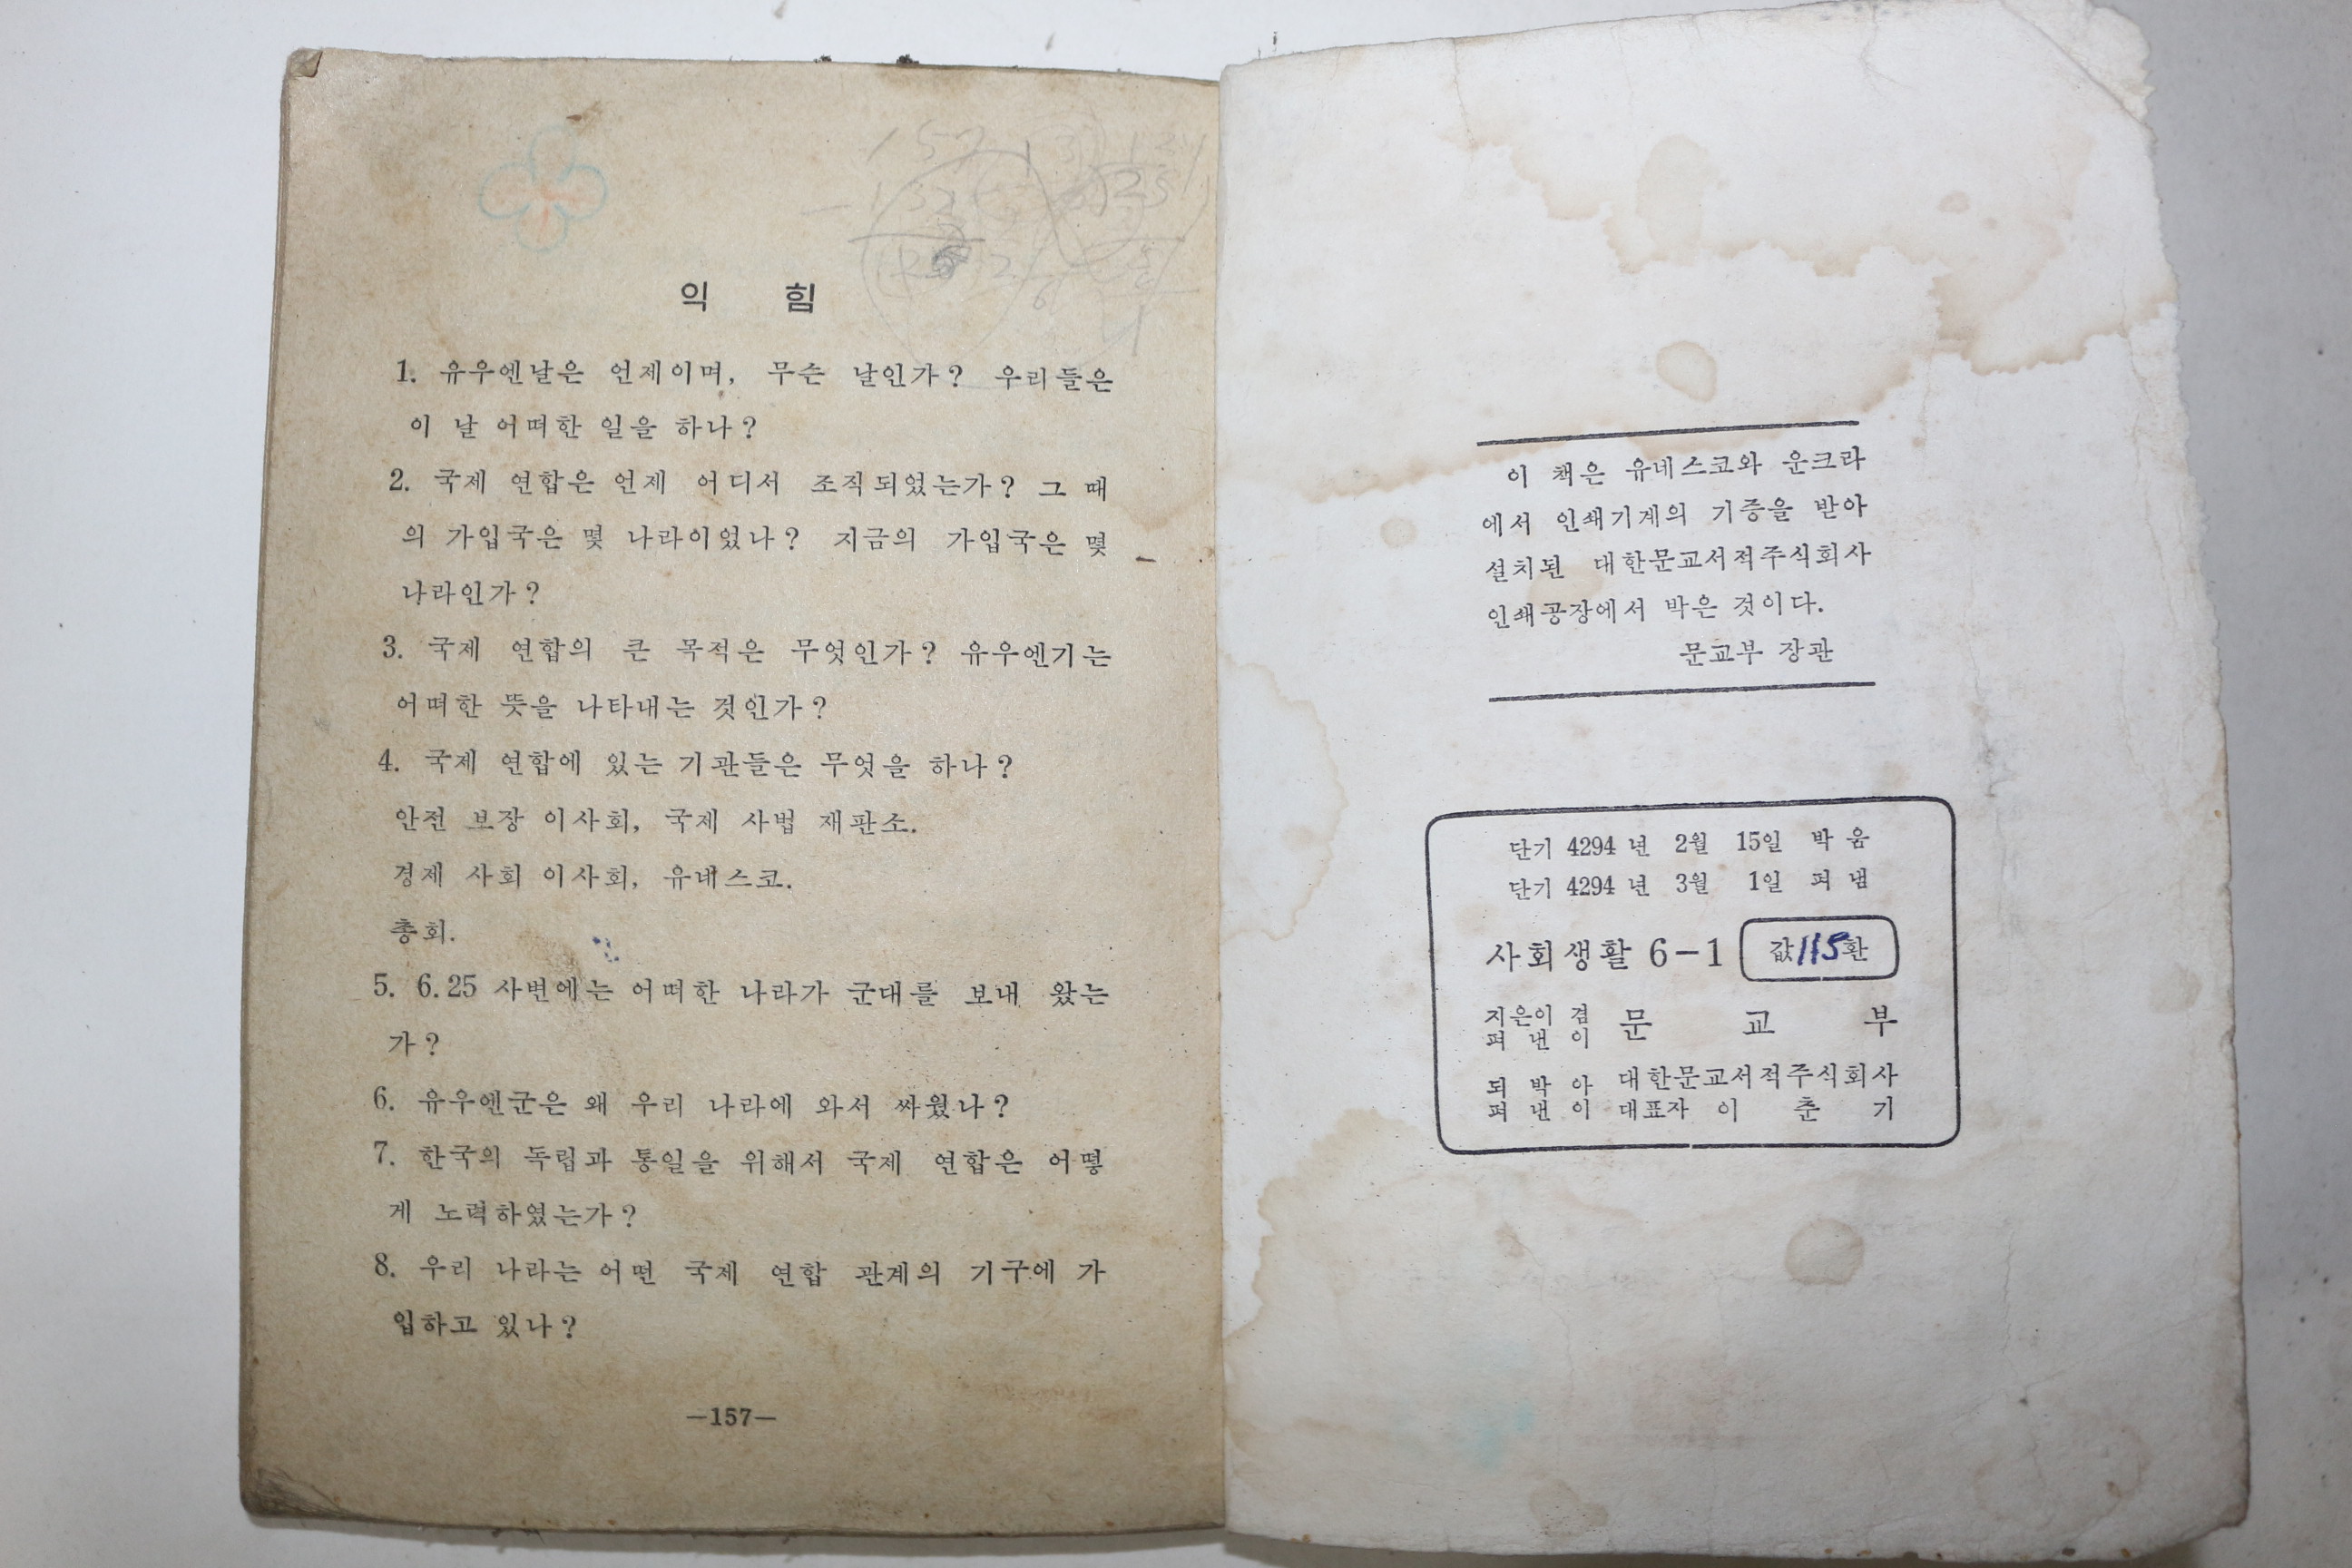 익 힘
1. 유우엔날은 언제이며, 무슨 날인가? 우리들은
이 날 어떠한 일을 하나?
2. 국제 연합은 언제 어디서 조직되었는가? 그 때
의 가입국은 몇 나라이었나? 지금의 가입국은 몇
나라인가?
3. 국제 연합의 큰 목적은 무엇인가? 유우엔기는
어떠한 뜻을 나타내는 것인가?
4. 국제 연합에 있는 기관들은 무엇을 하나?
안전 보장 이사회, 국제 사법 재판소.
경제 사회 이사회, 유네스코.
총회.
5. 6.25 사변에는 어떠한 나라가 군대를 보내 왔는
가?
6. 유우엔군은 왜 우리 나라에 와서 싸웠나?
7. 한국의 독립과 통일을 위해서 국제 연합은 어떻
게 노력하였는가?
8. 우리 나라는 어떤 국제 연합 관계의 기구에 가
입하고 있나?
—157—
이 책은 유네스코와 운크라
에서 인쇄기계의 기증을 받아
설치된 대한문교서적주식회사
인쇄공장에서 박은 것이다.
문교부 장관
단기 4294 년 2월 15일 박 음
단기 4294 년 3월 1일 펴 냄
사회생활 6-1 값 115환
지은이 겸
펴 낸 이 문 교 부
되 박 아 대한문교서적주식회사
펴 낸 이 대표자 이 춘 기